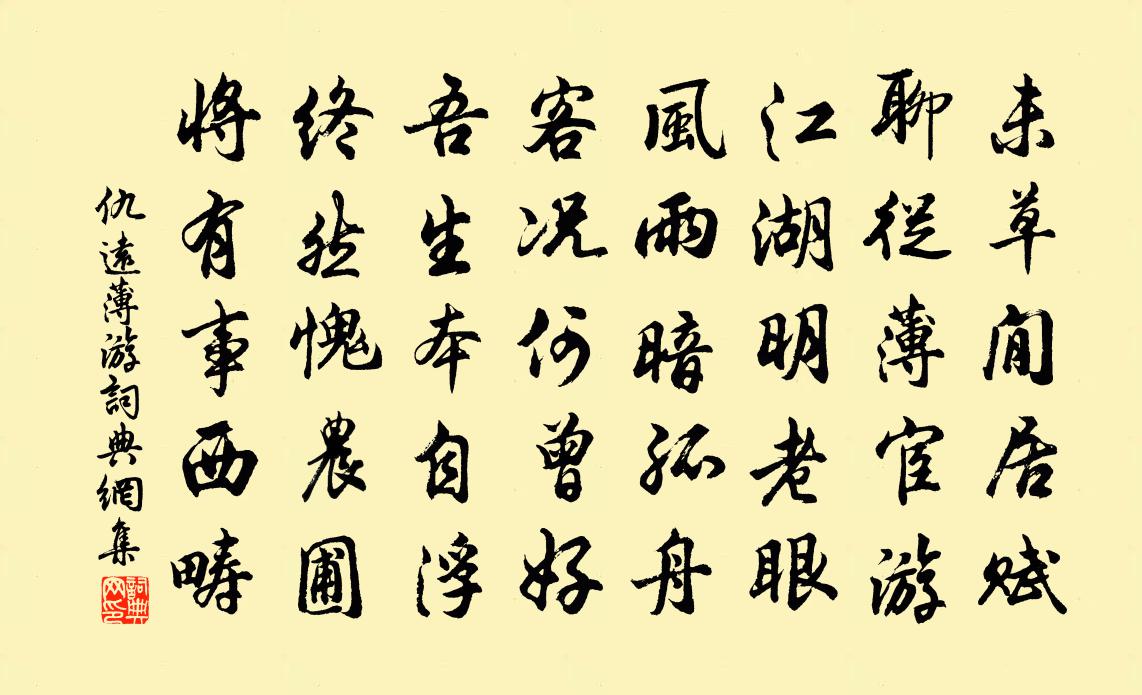 未草閒居賦
聊從薄宦游
江湖明老眼
風雨暗孤舟
客况何曾好
吾生本自浮
終然愧農圃
將有事西疇
仇遠薄游詞典網集
詞典網印